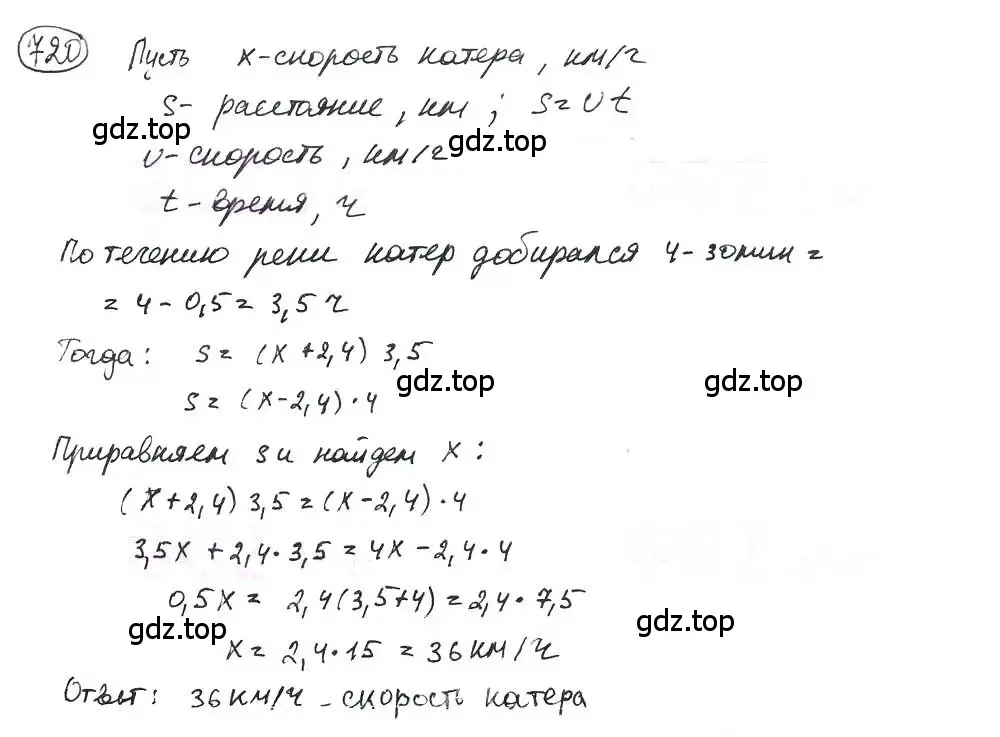 720 Пусть x-скорость катера, км/ч
s- расстояние, км; s=υt
gdz.top
gdz.top
υ-скорость, км/ч
t-время, ч
По течению реки катер добирался 4-30мин=
=4-0,5=3,5 ч
Тогда: s=(x+2,4)3,5
gdz.top
gdz.top
s=(x-2,4)·4
Приравняем s и найдем x:
(x+2,4)3,5=(x-2,4)·4
3,5x+2,4·3,5=4x-2,4·4
0,5x= 2,4(3,5+4)=2,4·7,5
gdz.top
gdz.top
x=2,4·15=36км/ч
Ответ: 36км/ч-скорость катера